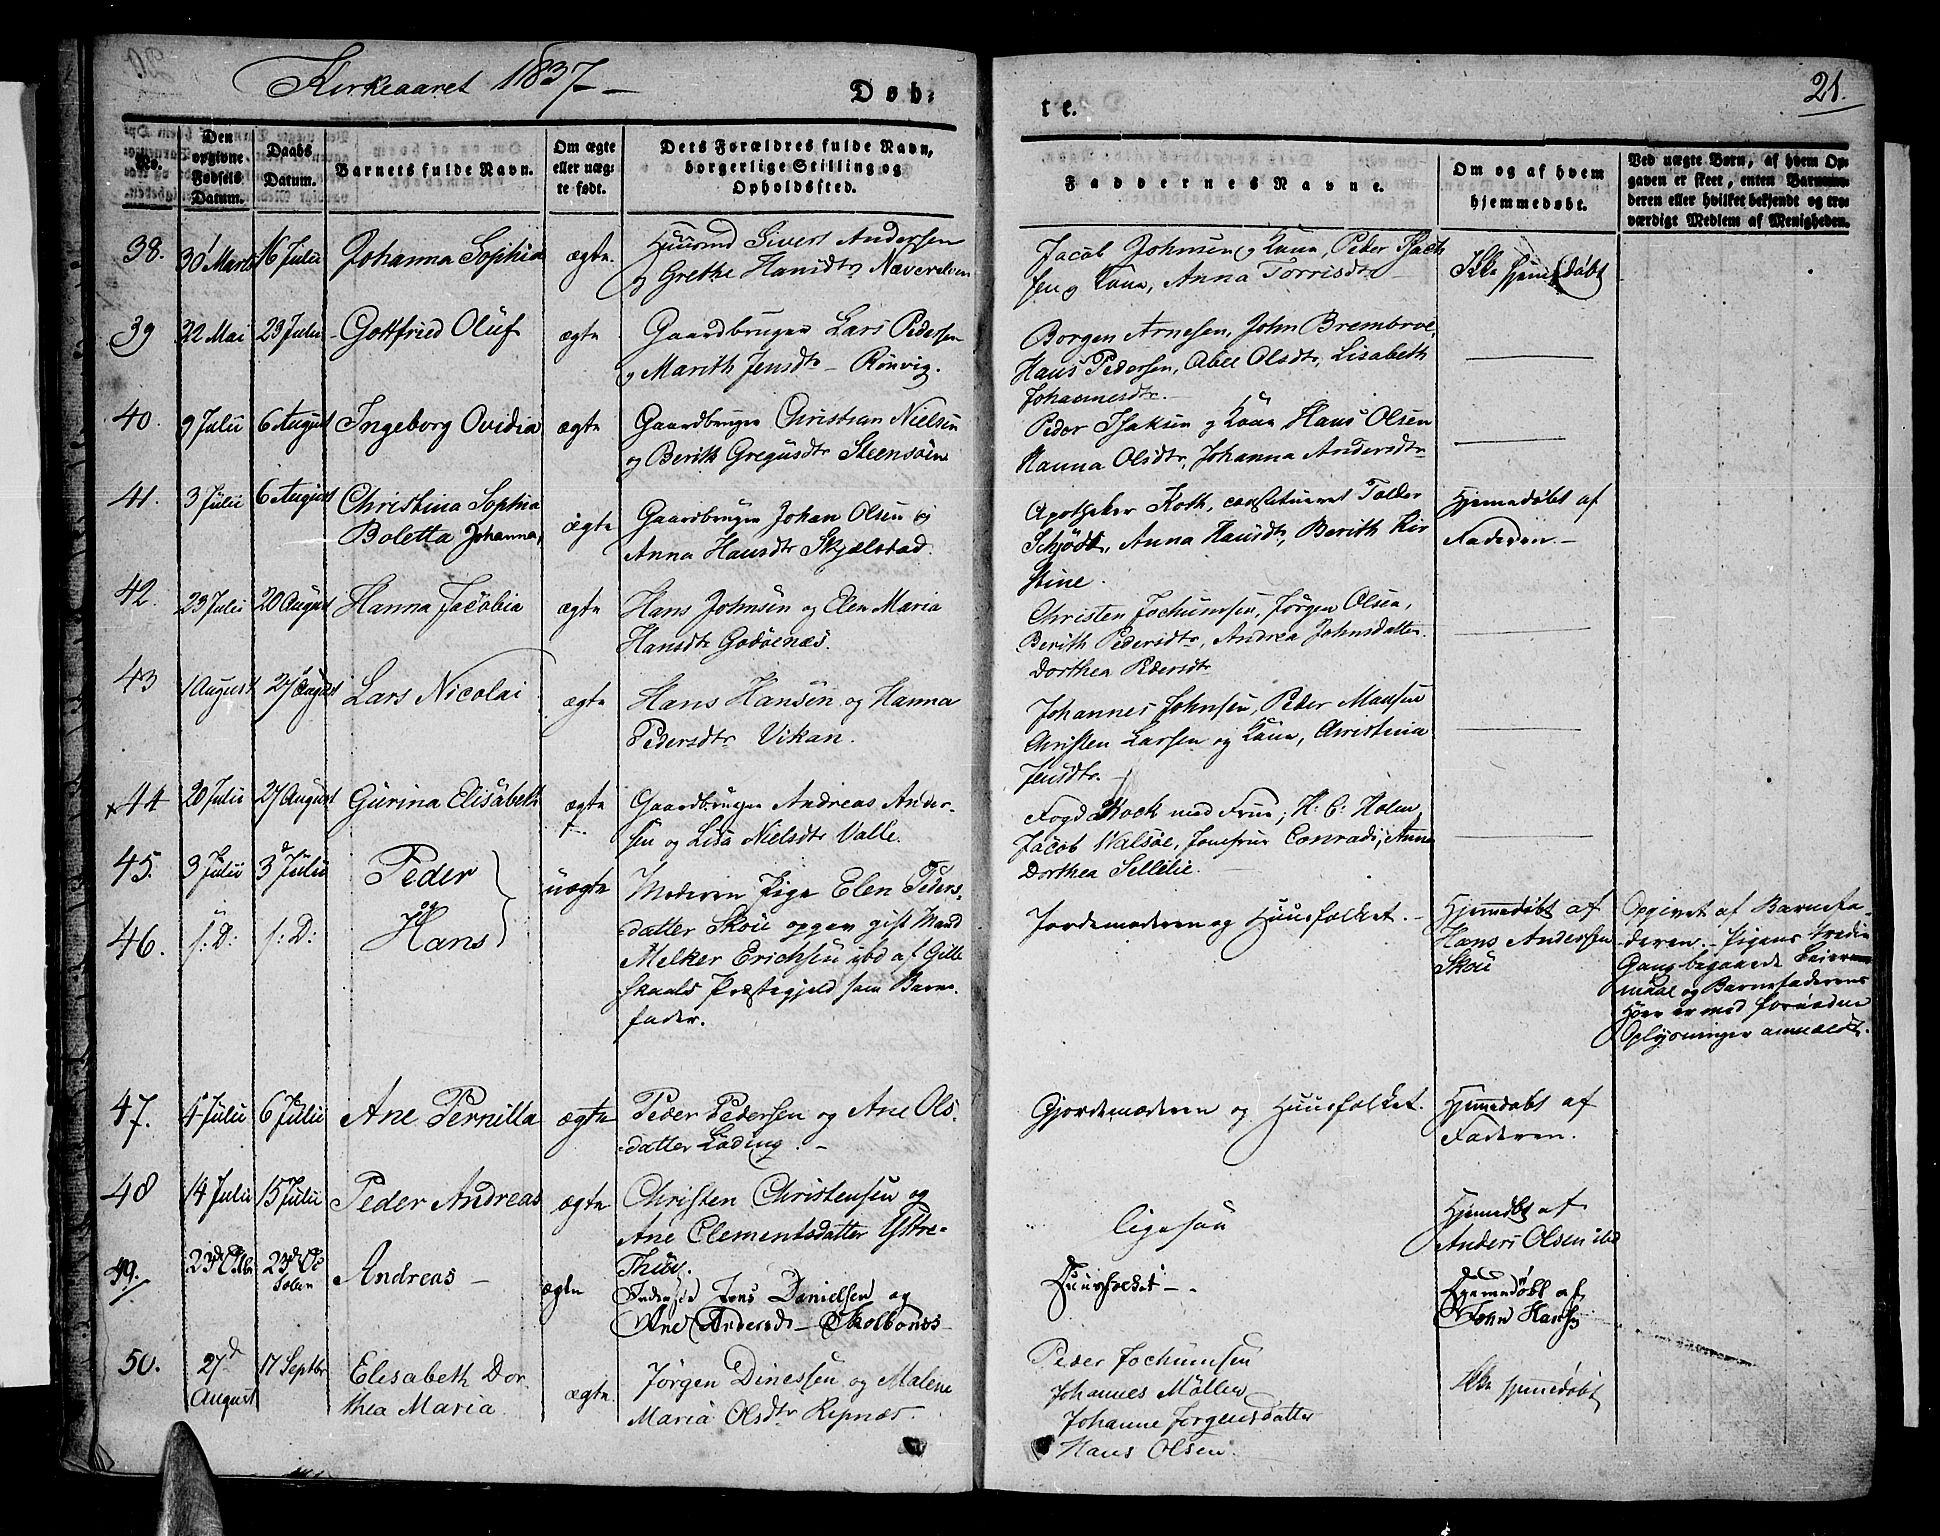 Kirkeaaret 1837 –
Døb:
te.
21.
No.
Den opgivne Fødsels Datum.
Daabs Datum.
Barnets fulde Navn.
Om ægte eller uægte født.
Dets Forældres fulde Navn, borgerlige Stilling og Opholdsted.
Faddernes Navne.
Om og af hvem hjemmedøbt.
Ved uægte Børn, af hvem Opgaven er skeet, enten Barnemoderen eller hvilket bekjendt og troværdigt Medlem af Menigheden.
38.
30 Marts
16 Julii
Johanna Sophia
ægte
Huusmd Sivert Andersen
og Grethe Hansdtr Næverelven
Jacob Johnsen og Kone, Peder Isach
sen og Kone, Anna Torrisdtr
Ikke hjemedøbt
39
22 Mai
23 Julii
Gottfried Oluf
ægte
Gaardbruger Lars Pedersen
og Marith Jensdtr – Rønvig.
Borgen Arnesen, John Brembroe,
Hans Pedersen, Abel Olsdtr, Lisabeth
Johannesdtr.
40.
9 Julii
6 August
Ingeborg Ovidia
ægte
Gaardbruger Christian Nielsen
og Berith Gregusdtr Steensøen
Peder Isaksen og Kone Hans Olsen
Hanna Olsdtr, Johanna Andersdtr
41.
3 Julii
6 August
Christina Sophia
Boletta Johanna,
ægte
Gaardbruger Johan Olsen og
Anna Hansdtr Skjælstad.
Apotheker Koth, constitueret Tolder
Schjødt, Anna Hansdtr, Berith Kir
stine.
Hjemedøbt af
Faderen. –
42.
23 Julii
20 August
Hanna Jacobia
ægte
Hans Johnsen og Elen Maria
Hansdtr Godøenæs.
Christen Jochumsen, Jørgen Olsen,
Berith Pedersdtr, Andrea Johnsdatter.
Dorthea Pedersdtr
43
1 August
27 August
Lars Nicolai
ægte
Hans Hansen og Hanna
Pedersdtr Vikan.
Johannes Johnsen, Peder Monsen
Christen Larsen og Kone, Christina
Jensdtr. –
× 44
20 Julii
27 August
Gurina Elisabeth
ægte
Gaardbruger Andreas Ander-
sen og Lisa Nielsdtr Valle.
Fogd Kock med Frue, H: C: Holm
Jacob Walsøe, Jomfrue Conradi, Anne
Dorthea Sellelie.
45.
3 Julii
3d Julii
Peder
og
uægte
Moderen Pige Elen Peders-
datter Skoie opgav gift Mand
Melker Erichsen ibd af Gille
skaals Præstegjeld som Barne-
fader.
Jordemoderen og Huusfolket. –
46.
s: D:
s: D:
Hans
Hjemmedøbt af
Hans Andersen
Skoie
Opgivet af Barnefa-
deren. – Pigens tredie
Gang begaaede Leier-
maal og Barnefaderens
Hoer er med fornødne
Oplysninger anmeldt.
47.
4 Julii
6 Julii
Ane Pernilla
ægte
Peder Pedersen og Ane Ols.
datter Løding. –
Gjordemoderen og Huusfolket.
Hjemmedøbt af
Faderen.
48
14 Julii
15 Julii
Peder Andreas
ægte
Christen Christensen og
Ane Clementsdatter Ystre-
Thuv.
ligesaa
Hjemedøbt af
Anders Olsen ibd
49.
23d Octbr
23d Oc
tober
Andreas –
ægte
Jens Danielsen og
Ane Andersdtr – Skolbones –
Huusfolket – .
Hjemmedøbt af
John Hansen
50.
27d
August
17 Septbr
Elisabeth Dor-
thea Maria
ægte
Jørgen Dinessen og Malene
Maria Olsdtr Ripnæs.
Peder Jochumsen
Johannes Møller
Johanne Jørgensdatter
Hans Olsen.
Ikke hjemedøbt